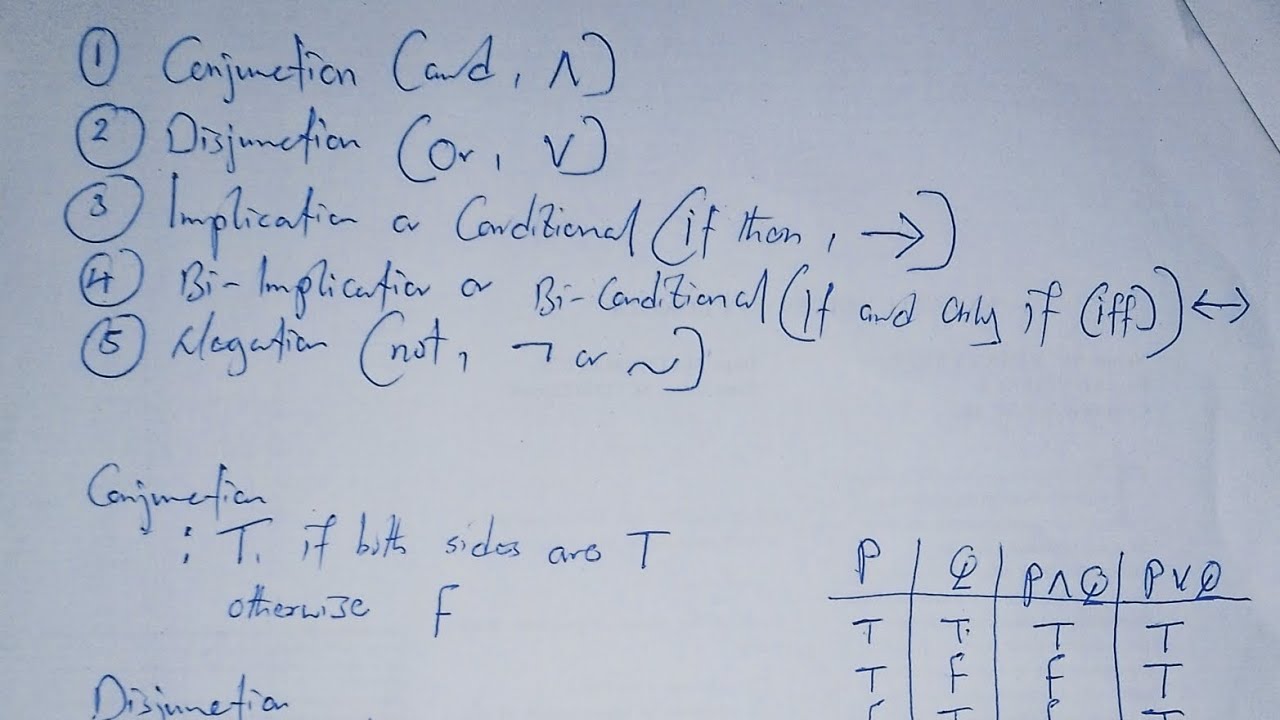 ① Conjunction (and, ∧)
② Disjunction (Or, ∨)
③ Implication or Conditional (if then, →)
④ Bi-Implication or Bi-Conditional (If and only if (iff)) ↔
⑤ Negation (not, ¬ or ~)
Conjunction
: T, if both sides are T
otherwise F
P | Q | P∧Q | P∨Q
T | T | T | T
T | F | F | T
F | T | F | T
Disjunction